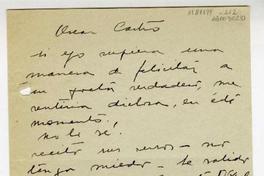 Oscar Castro
si yo supiera una
manera de felicitar a
un poeta verdadero, me
sentiría dichosa, en éste
momento.,
no lo se.
recito sus versos - no
tenga miedo - le